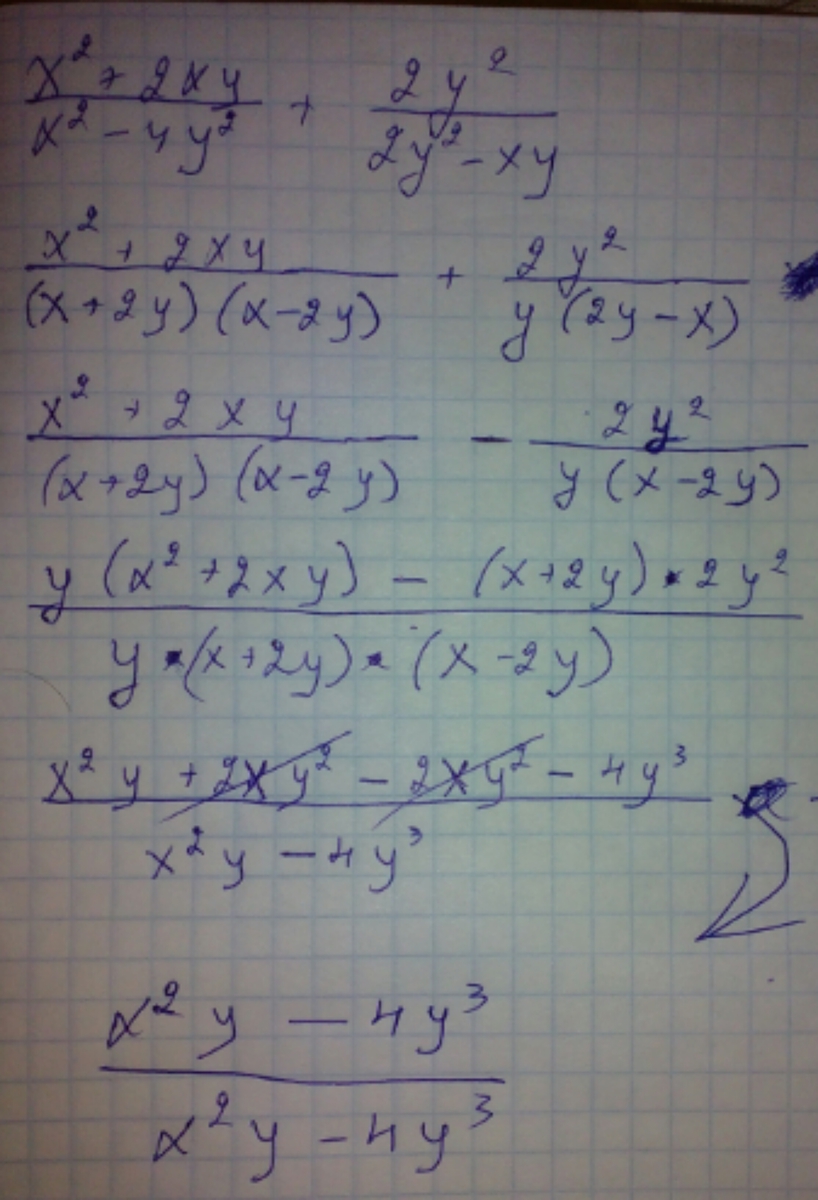 \frac{x^2 + 2xy}{x^2 - 4y^2} + \frac{2y^2}{2y^2 - xy}
\frac{x^2 + 2xy}{(x+2y)(x-2y)} + \frac{2y^2}{y(2y-x)}
\frac{x^2 + 2xy}{(x+2y)(x-2y)} - \frac{2y^2}{y(x-2y)}
\frac{y(x^2+2xy) - (x+2y) \cdot 2y^2}{y \cdot (x+2y) \cdot (x-2y)}
\frac{x^2y + 2xy^2 - 2xy^2 - 4y^3}{x^2y - 4y^3}
\frac{x^2y - 4y^3}{x^2y - 4y^3}